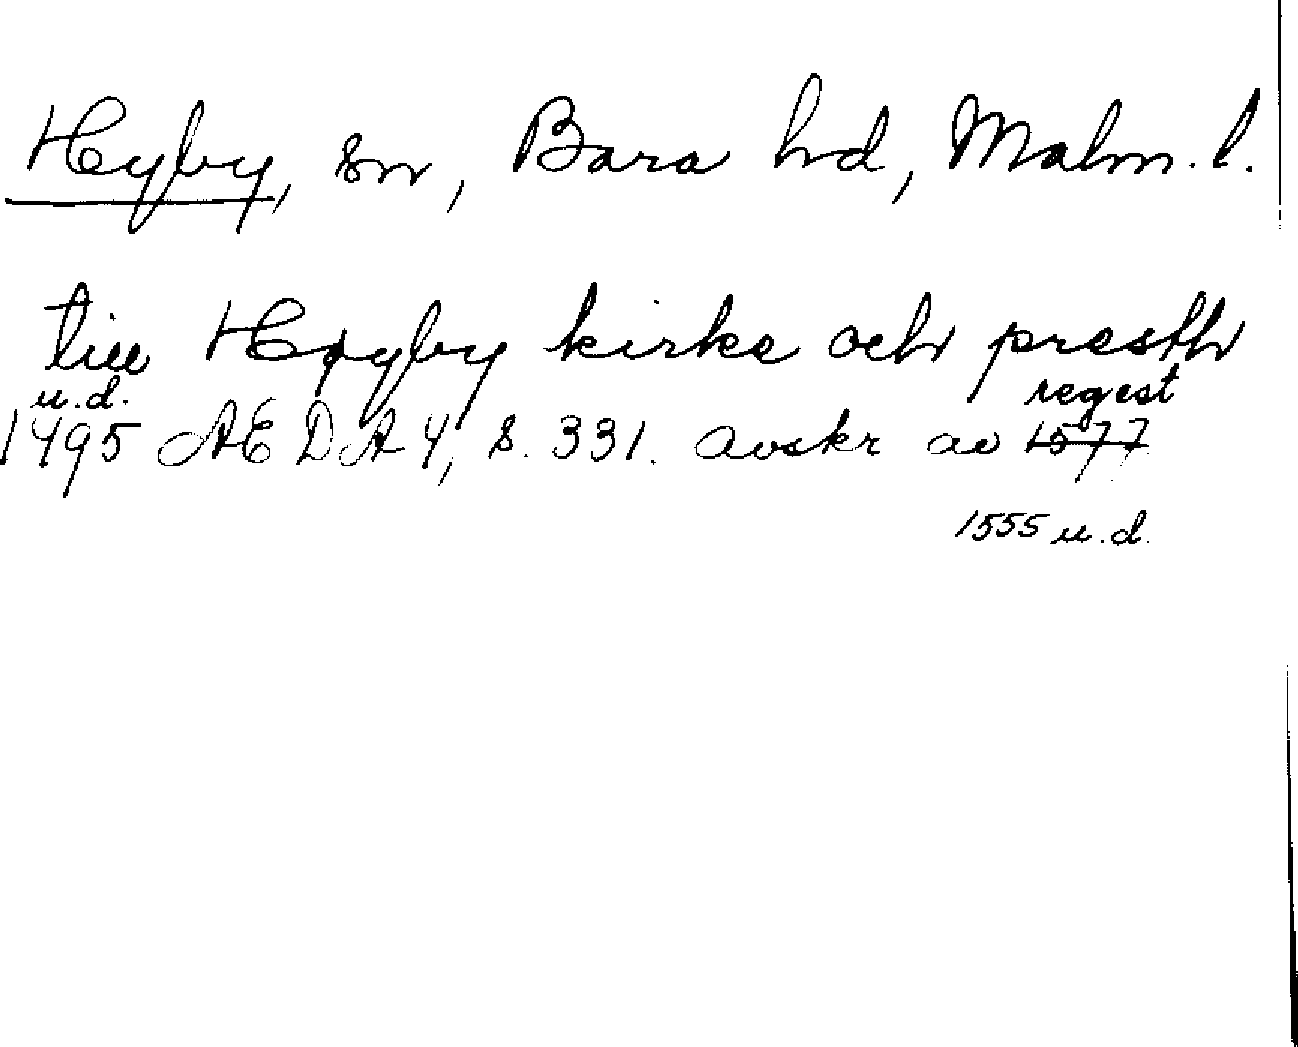 Hyby, sn, Bara hd, Malm. l.
till Høgby kirke och presth
u.d. regest
1495 ÆDA 4, s. 331. avskr av 1577
1555 u.d.